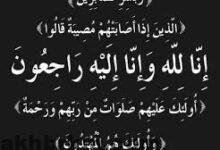 ﴿وَبَشِّرِ الصَّابِرِينَ﴾
﴿الَّذِينَ إِذَا أَصَابَتْهُمْ مُصِيبَةٌ قَالُوا﴾
إِنَّا لِلَّهِ وَإِنَّا إِلَيْهِ رَاجِعُونَ
﴿أُولَئِكَ عَلَيْهِمْ صَلَوَاتٌ مِنْ رَبِّهِمْ وَرَحْمَةٌ﴾
﴿وَأُولَئِكَ هُمُ الْمُهْتَدُونَ﴾